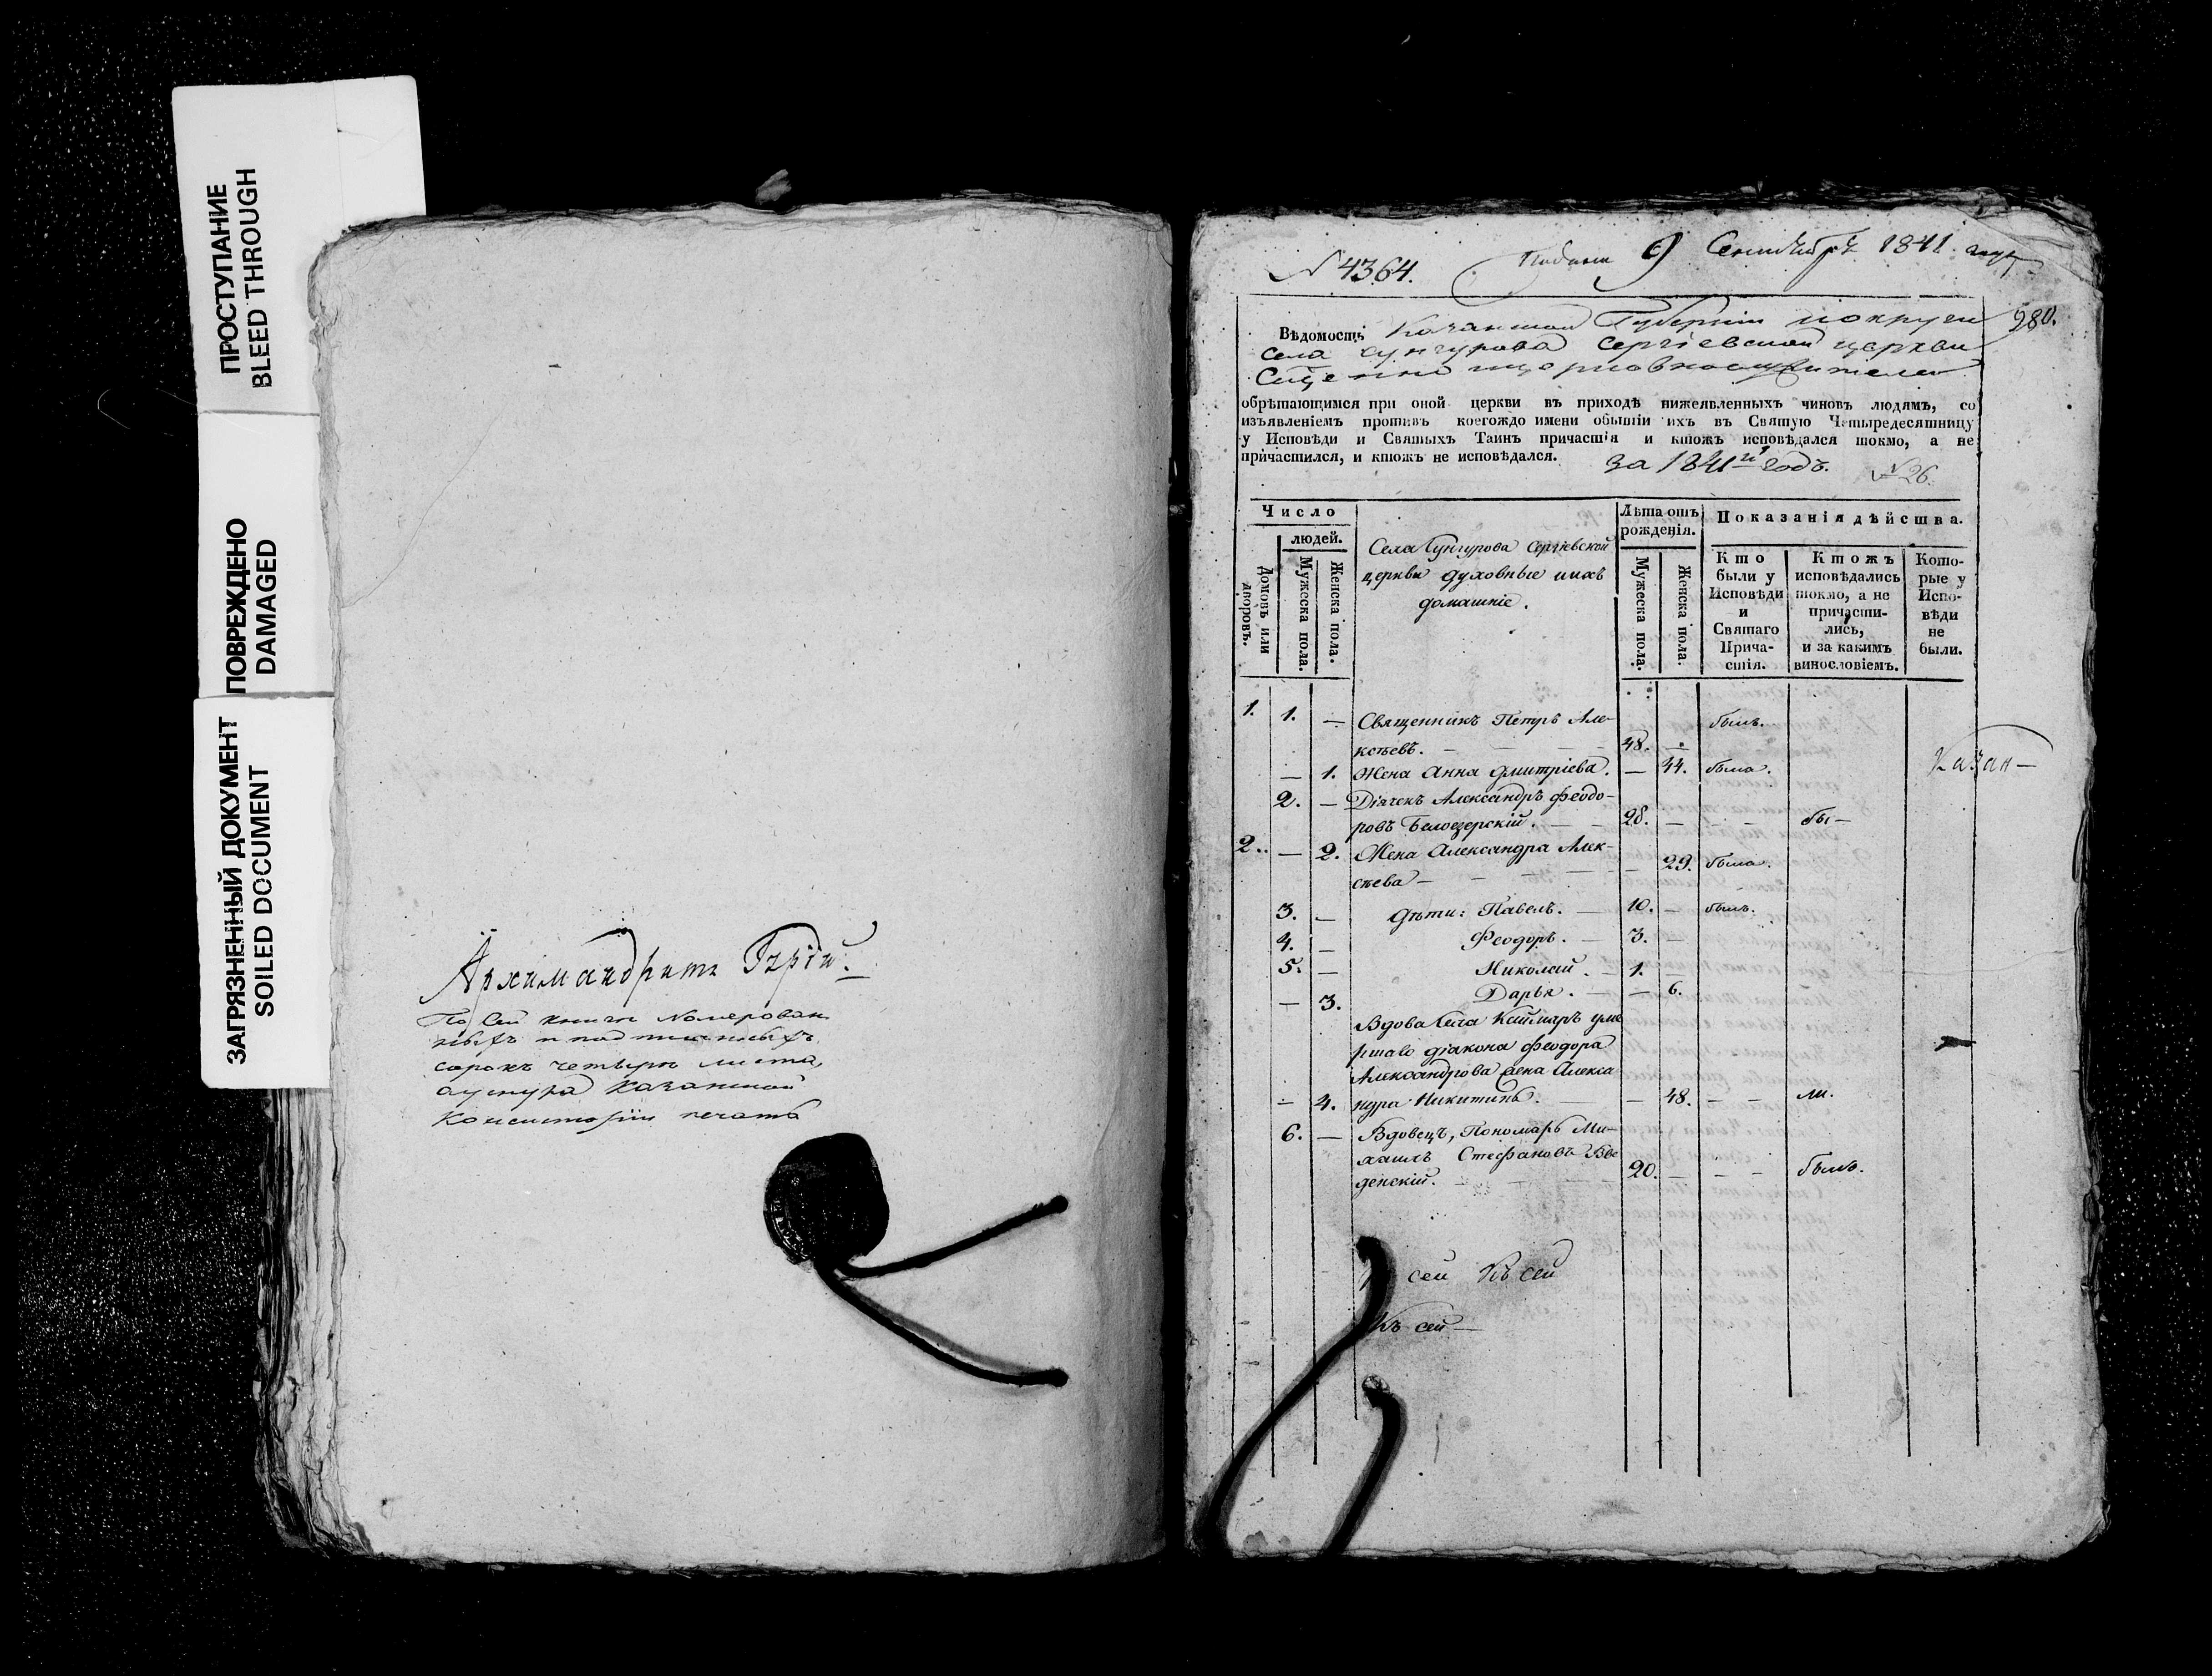 ПРОСТУПАНИЕ
BLEED THROUGH
ПОВРЕЖДЕНО
DAMAGED
ЗАГРЯЗНЕННЫЙ ДОКУМЕНТ
SOILED DOCUMENT
Архимандритъ Гурій.
По сей книги номерован
ныхъ и подписанныхъ
сорокъ четыре листа,
Казанской
Консисторіи печать
N 4364.
Подана 9 Сентября 1841 года
280.
Вѣдомость Казанской Губерніи и округи
села Сунгурова Сергіевской церкви
Священно и церковнослужителей
обрѣтающимся при оной церкви въ приходѣ нижеявленныхъ чиновъ людямъ, со
изъявленіемъ противъ коегождо имени обытіи ихъ въ Святую Четыредесятницу
у Исповѣди и Святыхъ Таинъ причастія и ктожъ исповѣдался токмо, а не
причастился, и ктожъ не исповѣдался. За 1841й годъ. № 26.
Число
людей.
Домовъ или дворовъ.
Мужеска пола.
Женска пола.
Села Сунгурова Сергіевской
церкви духовные и ихъ
домашніе.
Лѣта отъ
рожденія.
Мужеска пола.
Женска пола.
Показанія дѣйства.
Кто
были у
Исповѣди
и
Святаго
Прича-
стія.
Ктожъ
исповѣдались
токмо, а не
причасти-
лись,
и за какимъ
винословіемъ.
Кото-
рые у
Испо-
вѣди
не
были.
1. 1. — Священникъ Петръ Але- былъ.
ксѣевъ. — 48. —
— 1. Жена Анна Дмитріева. — 44. была. Казан—
2. — Діячекъ Александръ Феодо-
ровъ Белоезерскій. — 28. — — бы—
2. — 2. Жена Александра Алек- 29. была.
сѣева —
3. — Дѣти: Павелъ. — 10. — былъ.
4. — Феодоръ. — 3. —
5. — Николай. — 1. —
— 3. Дарья. — — 6.
Вдова Села умe
ршаго діакона Феодора
Александрова жена Алекса
— 4. ндра Никитина. — — 48. — — ли.
6. — Вдовецъ, Пономарь Ми-
хаилъ Стефановъ Вве
денскій. — 20. — — — былъ.
сей Къ сей
Къ сей —